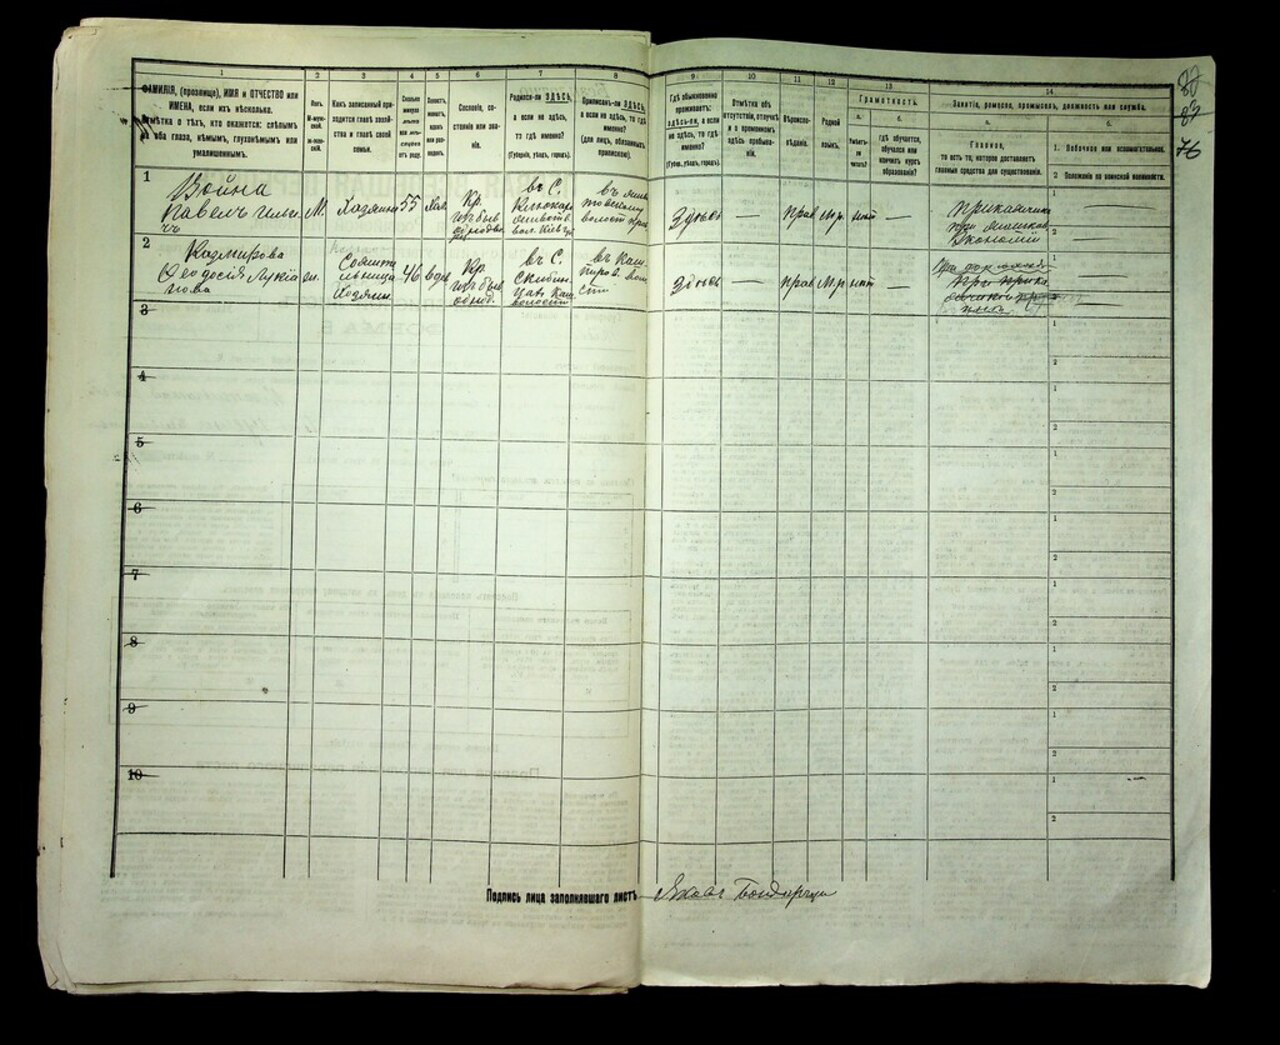 80
83
76
1
2
3
4
5
6
7
8
9
10
11
12
13
14
ФАМИЛІЯ, (прозвище), ИМЯ и ОТЧЕСТВО или
ИМЕНА, если ихъ нѣсколько.
Отмѣтка о тѣхъ, кто окажется: слѣпымъ
на оба глаза, нѣмымъ, глухонѣмымъ или
умалишеннымъ.
Полъ.
М-муж-
ской.
Ж-жен-
скій.
Какъ записанный при-
ходится главѣ хозяй-
ства и главѣ своей
семьи.
Сколько
минуло
лѣтъ
или мѣ-
сяцевъ
отъ роду.
Холостъ,
женатъ,
вдовъ
или раз-
веденъ.
Сословіе, со-
стояніе или зва-
ніе.
Родился-ли ЗДѢСЬ,
а если не здѣсь,
то гдѣ именно?
(Губернія, уѣздъ, городъ).
Приписанъ-ли ЗДѢСЬ,
а если не здѣсь, то гдѣ
именно?
(для лицъ, обязанныхъ
припиской).
Гдѣ обыкновенно
проживаетъ:
здѣсь-ли, а если
не здѣсь, то гдѣ
именно?
(Губерн., уѣздъ, городъ).
Отмѣтка объ
отсутствіи, отлучкѣ
и о временномъ
здѣсь пребыва-
ніи.
Вѣроиспо-
вѣданіе.
Родной
языкъ.
Грамотность.
а.
Умѣетъ-
ли
читать?
б.
Гдѣ обучается,
обучался или
кончилъ курсъ
образованія?
Занятіе, ремесло, промыселъ, должность или служба.
а.
Главное,
то есть то, которое доставляетъ
главныя средства для существованія.
б.
1. Побочное или вспомогательное.
2 Положеніе по воинской повинности.
1
Война
Павелъ Ильи
чъ
М.
Хозяинъ
55
Хол.
Кр.
изъ быв
въ С.
вол. Кіев. губ
Здѣсь
—
прав
м.р.
нѣт
—
прикащикъ
при
Экономіи
2
Казмирова
Ѳеодосія Лукія
нова
ж.
Сожите
льница
Хозяин.
46
вдов
Кр.
изъ быв
въ С.
волости
въ Каш
пиров. вол
сти
Здѣсь
—
прав
м.р
нѣт
—
при прика
3
4
5
6
7
8
9
10
Подпись лица заполнявшаго листъ
Яковъ Бондарчукъ